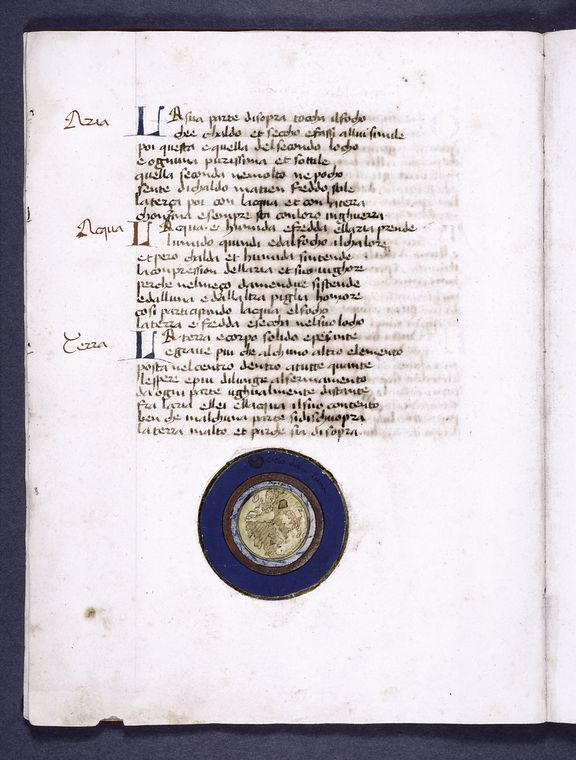 Aria
LA sua parte disopra toccha ilfocho
chee chaldo et seccho efassi allui simile
poi questa e quella del secondo locho
e ognuna purissima et sottile
quella seconda nemolto ne pocho
sente di chaldo matien freddo stile
la terça poi con lacqua et con laterra
chonfina e sempre sta con loro in ghuerra
Acqua
LAcqua e humida e fredda ellaria prende
lumido quindi edal focho il chalore
et pero chalda et humida sintende
la conpression dellaria et suo vighore
perche nel meço damendue sistende
e dalluna e dallaltra piglia homore
cosi participando lacqua el focho
la terra e fredda e seccha nel suo locho
Terra
LA terra e corpo solido e pesante
e grave piu che alchuno altro elemento
posta nel centro dentro a tutte quante
lespere e piu di lungi al fermamento
da ogni parte ughualmente distante
fra laria ellei ellacqua il suo contento
ben che inalchuna parte si dischuopra
la terra molto et parche stia di sopra